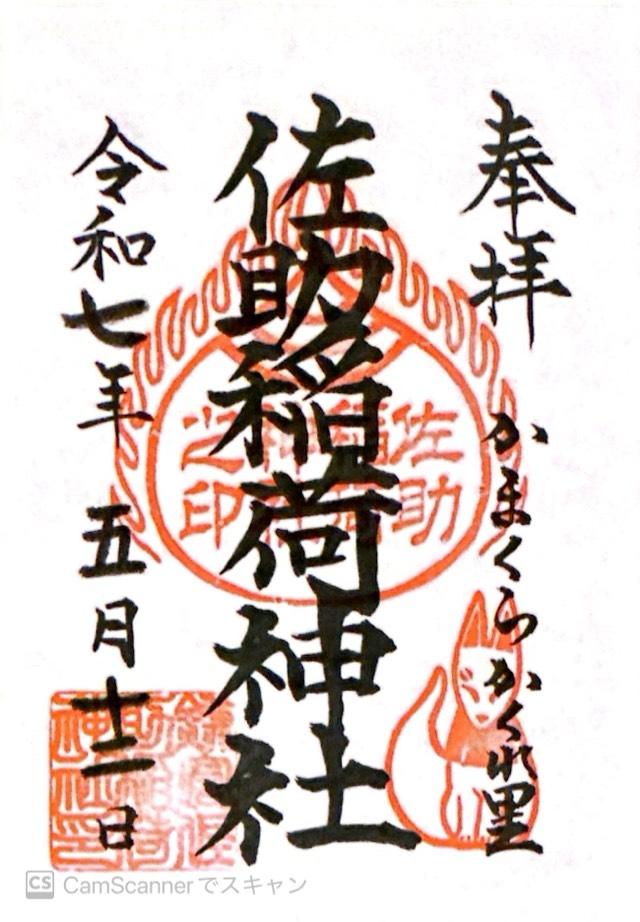 奉拝
かまくらかくれ里
佐助稲荷神社
佐助
稲荷
神社
之印
令和七年 五月十二日
鎌倉佐
助稲荷
神社印
CS CamScannerでスキャン